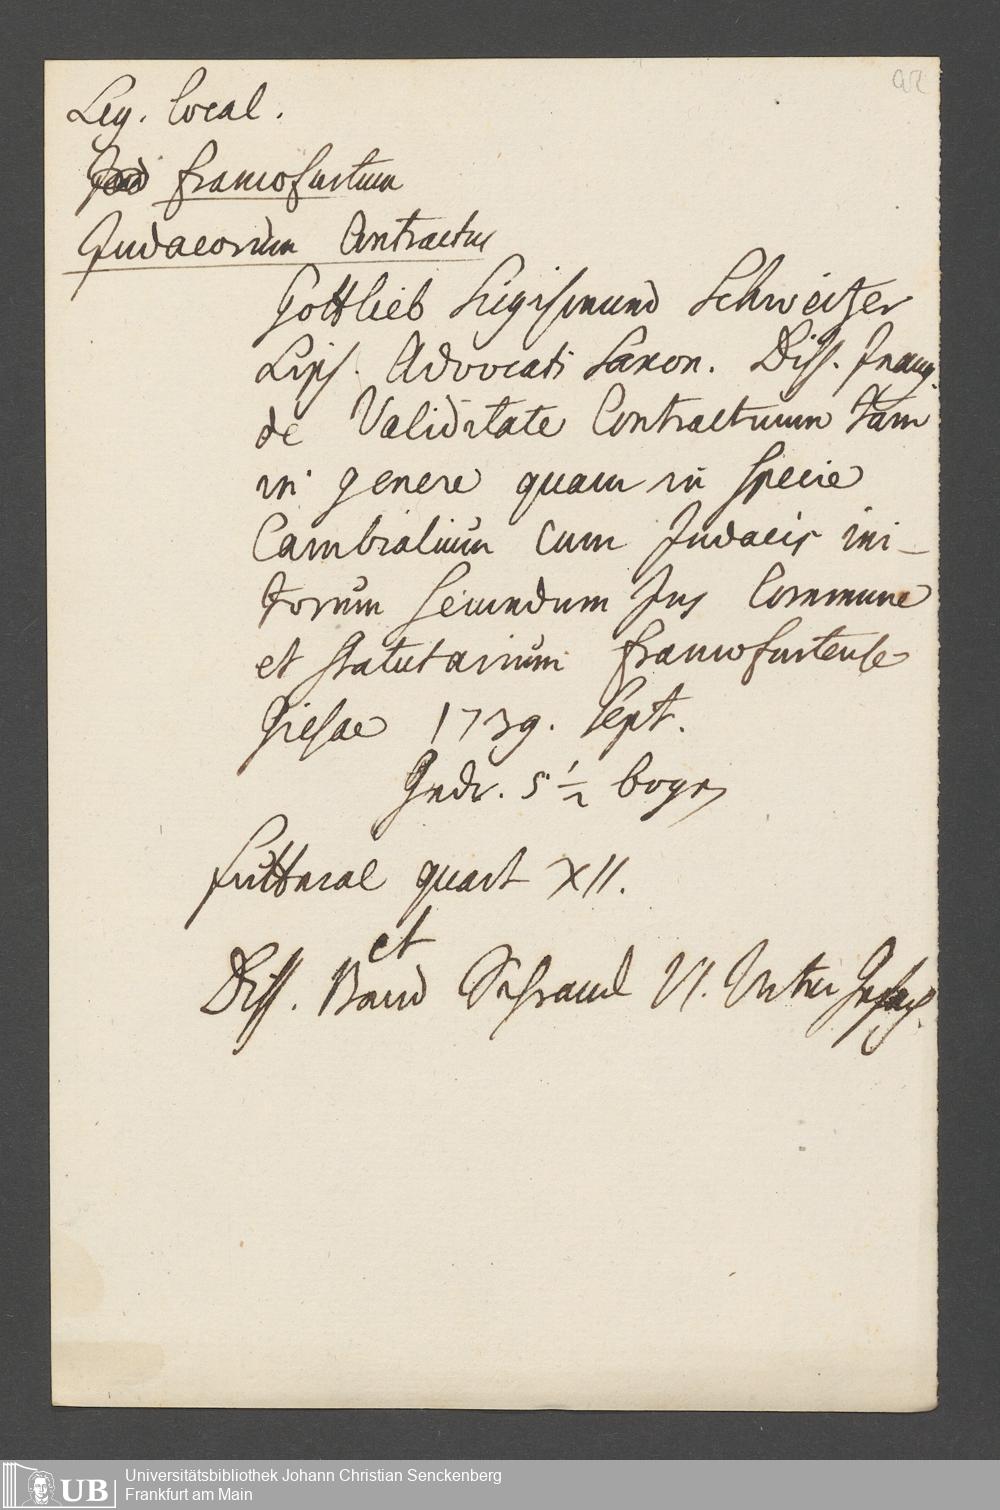 Leg. local.
francofurtum
Judaeorum Contractus
Gottlieb Sigismund Schweitzer
Lips. Advocati Saxon. Diss. Inaug.
de Validitate Contractuum tam
in genere quam in specie
Cambialium cum Judaeis ini-
torum secundum Jus Commune
et statutarium francofurtense
Giesae 1739. Sept.
Gedr. 5 1/2 bogen
futteral quart XII.
et
Diss. Band Schrank VI. Unter
Universitätsbibliothek Johann Christian Senckenberg
Frankfurt am Main
UB